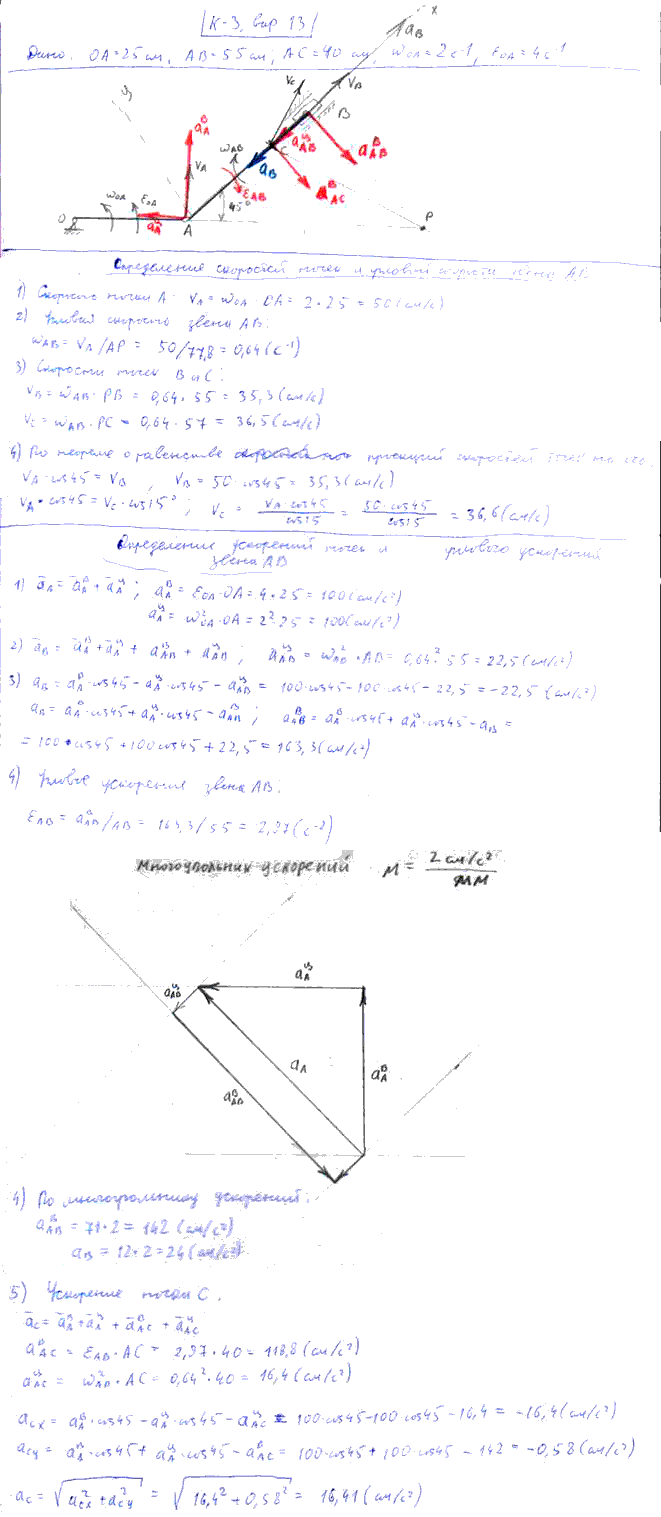 К-3, вар 13
Дано: OA=25см, AB=55см; AC=40см, ω_OA=2с⁻¹, ε_OA=4с⁻¹
x
a_B
y
V_C
V_B
B
a_A^в
ω_AB
C
a_AB^ц
a_AB^в
V_A
a_B
ε_AB
a_AC^в
ω_OA
ε_OA
45°
O
a_A^ц
A
P
Определение скоростей точек и угловой скорости звена AB
1) Скорость точки A: V_A = ω_OA · OA = 2·25 = 50 (см/с)
2) Угловая скорость звена AB:
ω_AB = V_A/AP = 50/77,8 = 0,64 (с⁻¹)
3) Скорости точек B и C:
V_B = ω_AB · PB = 0,64 · 55 = 35,3 (см/с)
V_C = ω_AB · PC = 0,64 · 57 = 36,5 (см/с)
4) По теореме о равенстве проекций скоростей точек на
V_A · cos45 = V_B , V_B = 50·cos45 = 35,3 (см/с)
V_A · cos45 = V_C · cos15° ; V_C = V_A·cos45/cos15 = 50·cos45/cos15 = 36,6 (см/с)
Определение ускорений точек и углового ускорения
звена AB
1) ā_A = ā_A^в + ā_A^ц ; a_A^в = ε_OA · OA = 4·25 = 100 (см/с²)
a_A^ц = ω²_OA · OA = 2²·25 = 100 (см/с²)
2) ā_B = ā_A^в + ā_A^ц + ā_AB^в + ā_AB^ц ; a_AB^ц = ω²_AB · AB = 0,64² · 55 = 22,5 (см/с²)
3) a_B = a_A^в · cos45 - a_A^ц · cos45 - a_AB^ц = 100·cos45 - 100·cos45 - 22,5 = -22,5 (см/с²)
a_B = a_A^в · cos45 + a_A^ц · cos45 - a_AB^в ; a_AB^в = a_A^в · cos45 + a_A^ц · cos45 - a_B =
= 100·cos45 + 100cos45 + 22,5 = 163,3 (см/с²)
4) Угловое ускорение звена AB:
ε_AB = a_AB^в/AB = 163,3/55 = 2,97 (с⁻²)
Многоугольник ускорений μ = 2 см/с² / мм
a_A^ц
a_AB^ц
a_A
a_A^в
a_AB^в
4) По многоугольнику ускорений:
a_AB^в = 71·2 = 142 (см/с²)
a_B = 12·2 = 24 (см/с²)
5) Ускорение точки C.
ā_C = ā_A^в + ā_A^ц + ā_AC^в + ā_AC^ц
a_AC^в = ε_AB · AC = 2,97 · 40 = 118,8 (см/с²)
a_AC^ц = ω²_AB · AC = 0,64² · 40 = 16,4 (см/с²)
a_Cx = a_A^в · cos45 - a_A^ц · cos45 - a_AC^ц = 100·cos45 - 100·cos45 - 16,4 = -16,4 (см/с²)
a_Cy = a_A^в · cos45 + a_A^ц · cos45 - a_AC^в = 100·cos45 + 100·cos45 - 142 = -0,58 (см/с²)
a_C = √(a²_Cx + a²_Cy) = √(16,4² + 0,58²) = 16,41 (см/с²)